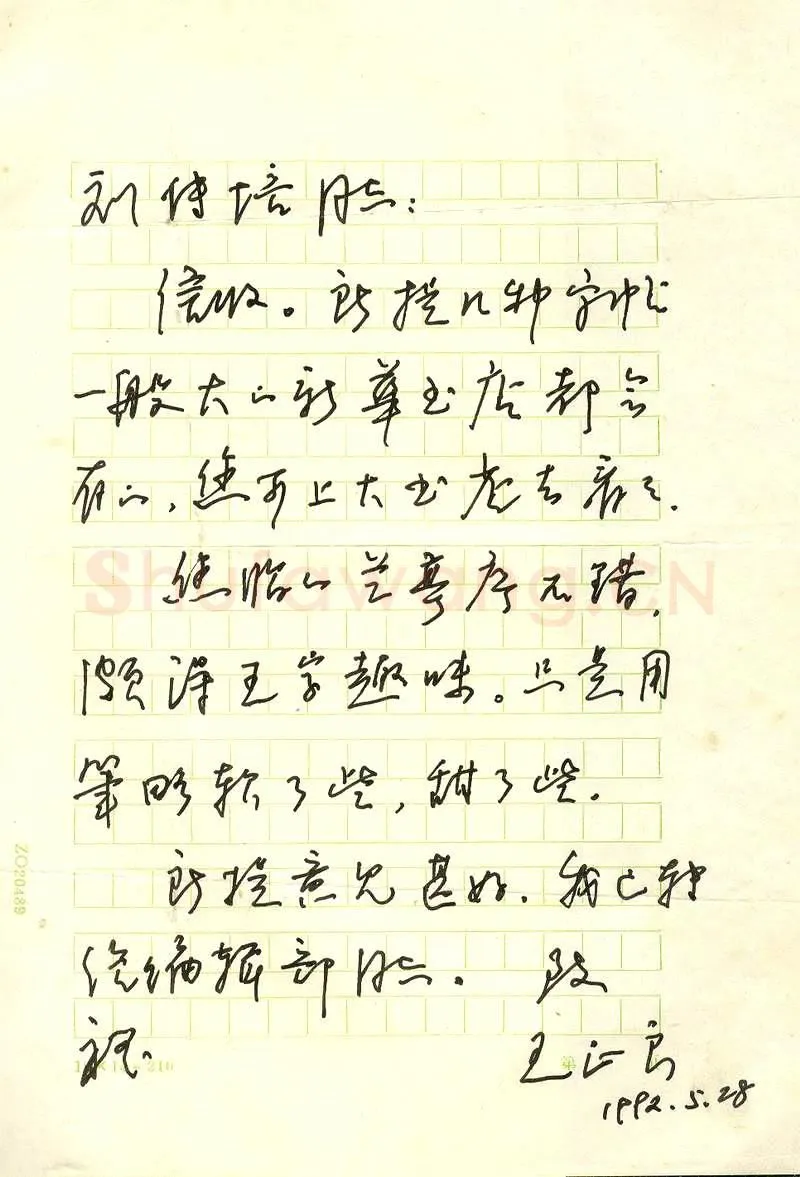 刘传培同志：
信收。所提几种字帖
一般大的新华书店都会
有的，您可上大书店去看看。
您临的兰亭序不错，
颇得王字趣味。只是用
笔略软了些，甜了些。
所提意见甚好，我已转
给编辑部同志。 致
祝
王正良
1992.5.28
ShufaWang.CN
ZO20489
216
第